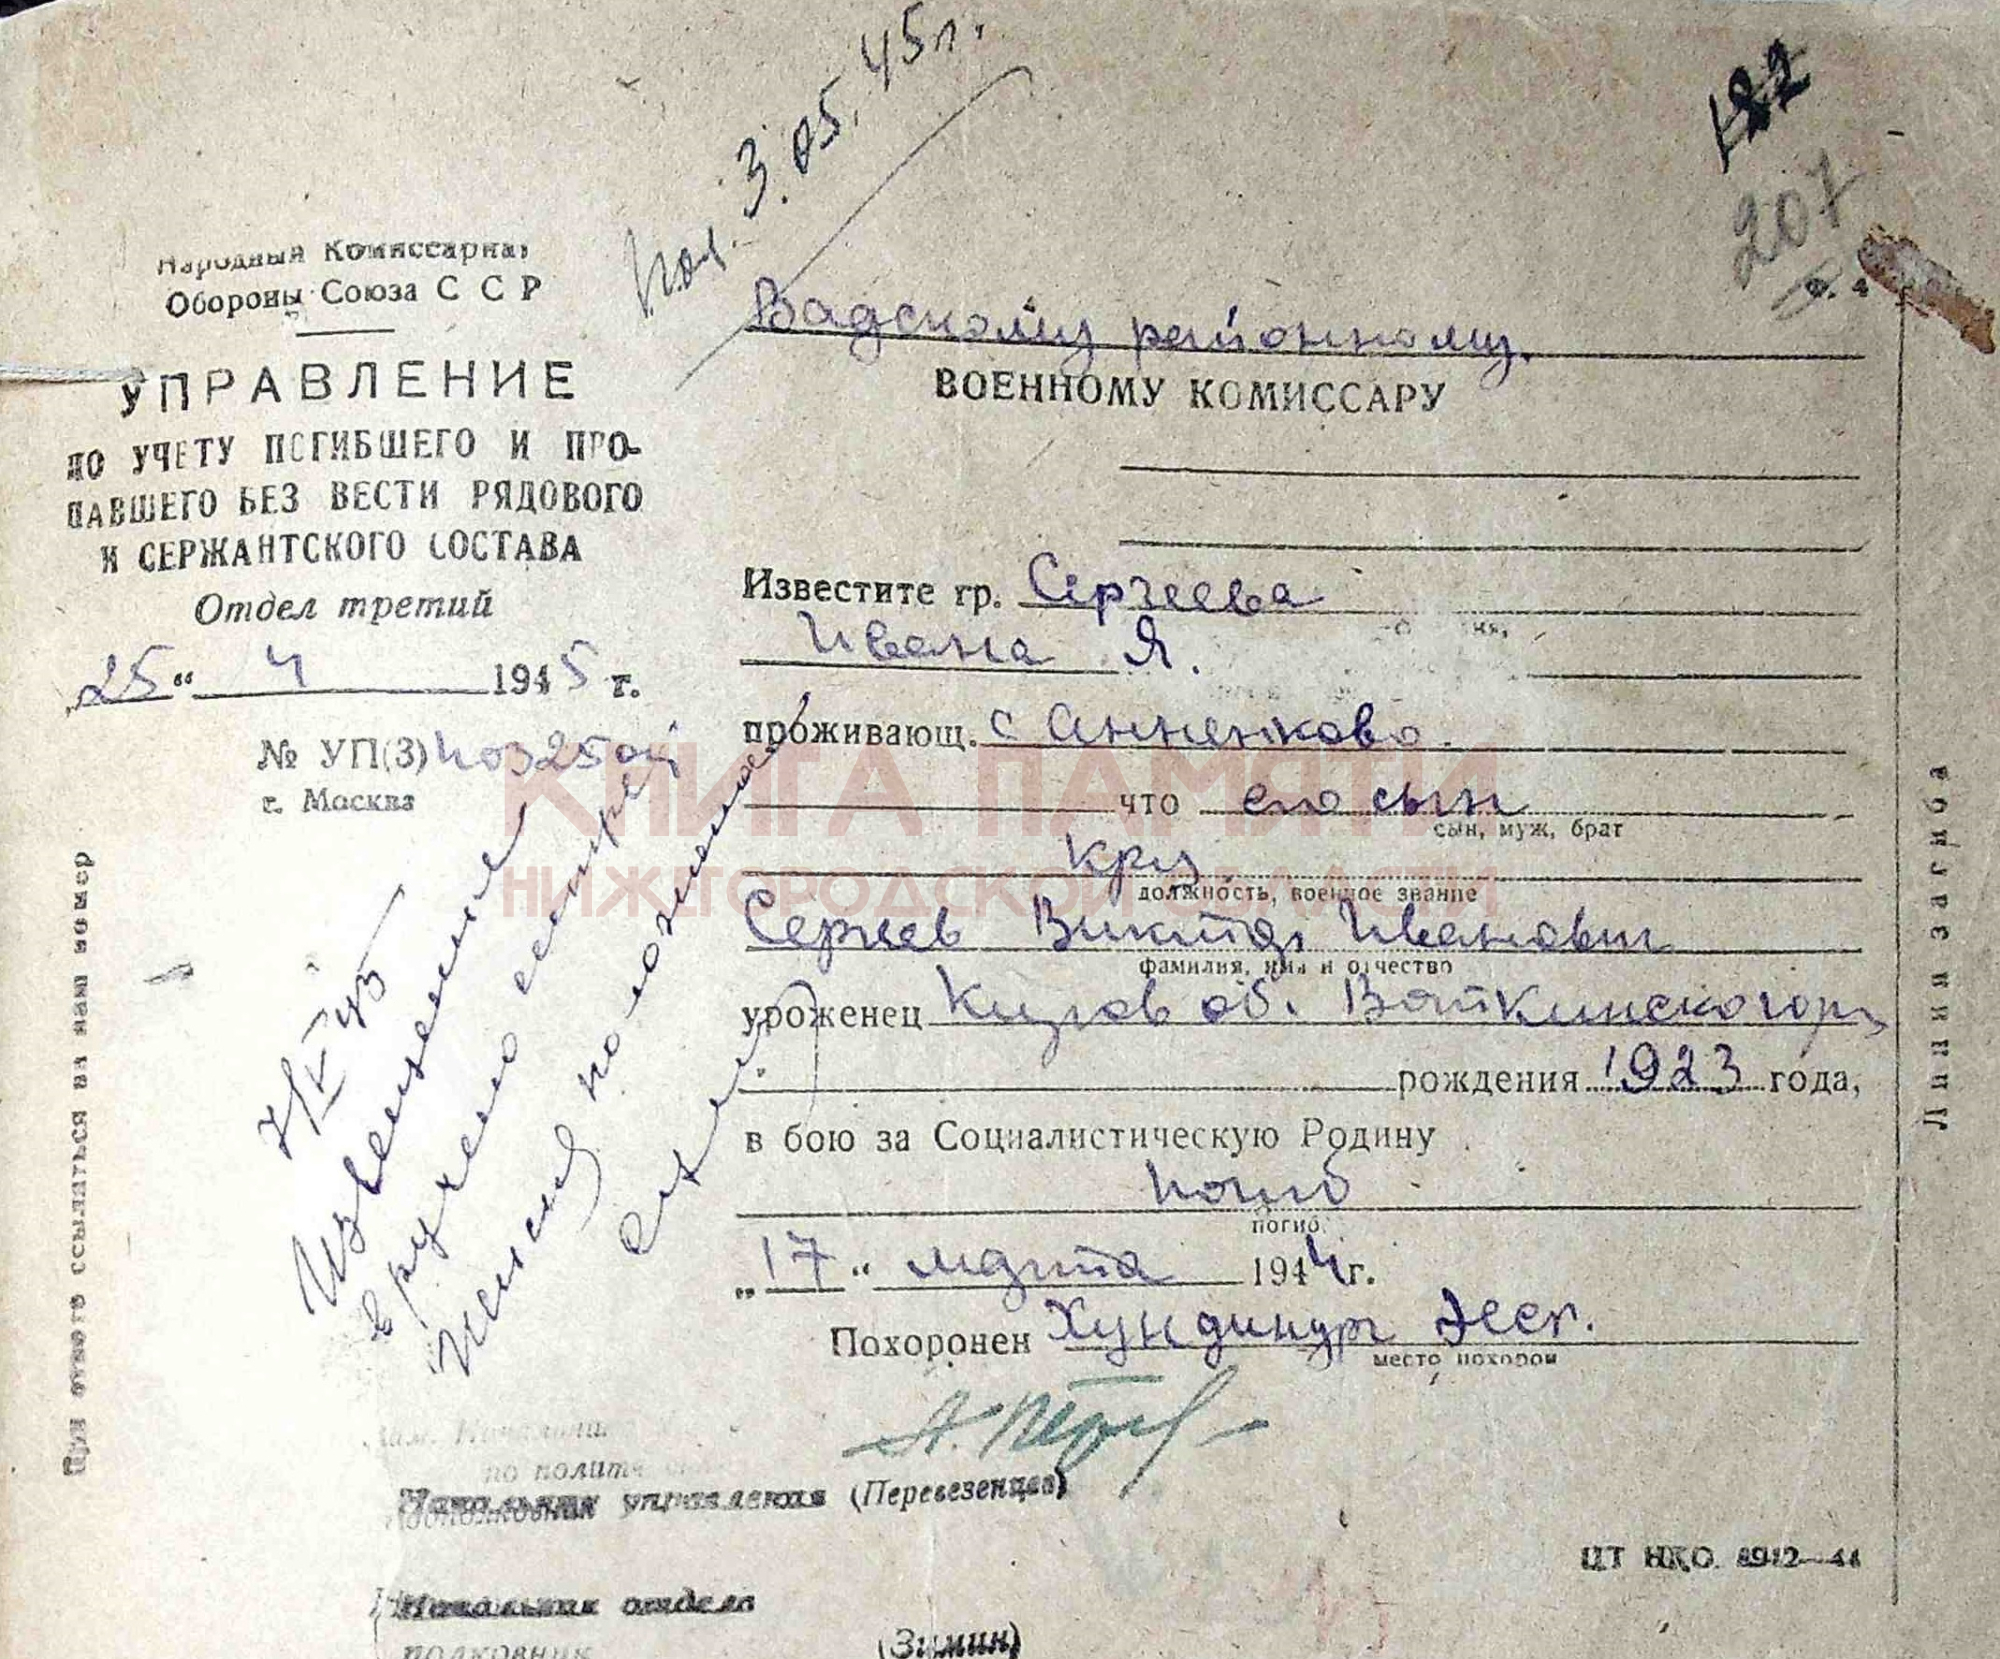 Пол. 3.05.45г.
182
207
Народный Комиссариат
Обороны Союза С С Р
УПРАВЛЕНИЕ
ПО УЧЕТУ ПОГИБШЕГО И ПРО-
ПАВШЕГО БЕЗ ВЕСТИ РЯДОВОГО
И СЕРЖАНТСКОГО СОСТАВА
Отдел третий
„25“ 4 1945 г.
№ УП(3)
г. Москва
При ответе ссылаться на наш номер
7/V 45
Извещение
вручено сестре
Пенсия по
Ф. 4
Вадскому районному
ВОЕННОМУ КОМИССАРУ
Известите гр. Сергеева
Ивана Я.
проживающ. с Анненково.
что его сын
сын, муж, брат
кр-ц
должность, военное звание
Сергеев Виктор Иванович
фамилия, имя и отчество
уроженец Киров об. Воткинск гор
рождения 1923 года,
в бою за Социалистическую Родину
погиб
погиб.
„17“ марта 1944г.
Похоронен Хундинург Эст.
место похорон
по полит
Начальник управления (Перевезенцев)
подполковник
Начальник отдела
полковник (Зимин)
ЦТ НКО. 8912—44
Линия загиба
КНИГА ПАМЯТИ
НИЖЕГОРОДСКОЙ ОБЛАСТИ